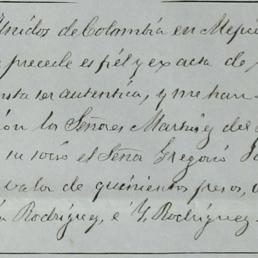 Unidos de Colombia en Méji
precede es fiel y exacta de
ser autentica, y me han
los Señores Martinez del
su socio el Señor Gregorio
valor de quinientos pesos,
Rodriguez, é Y. Rodriguez